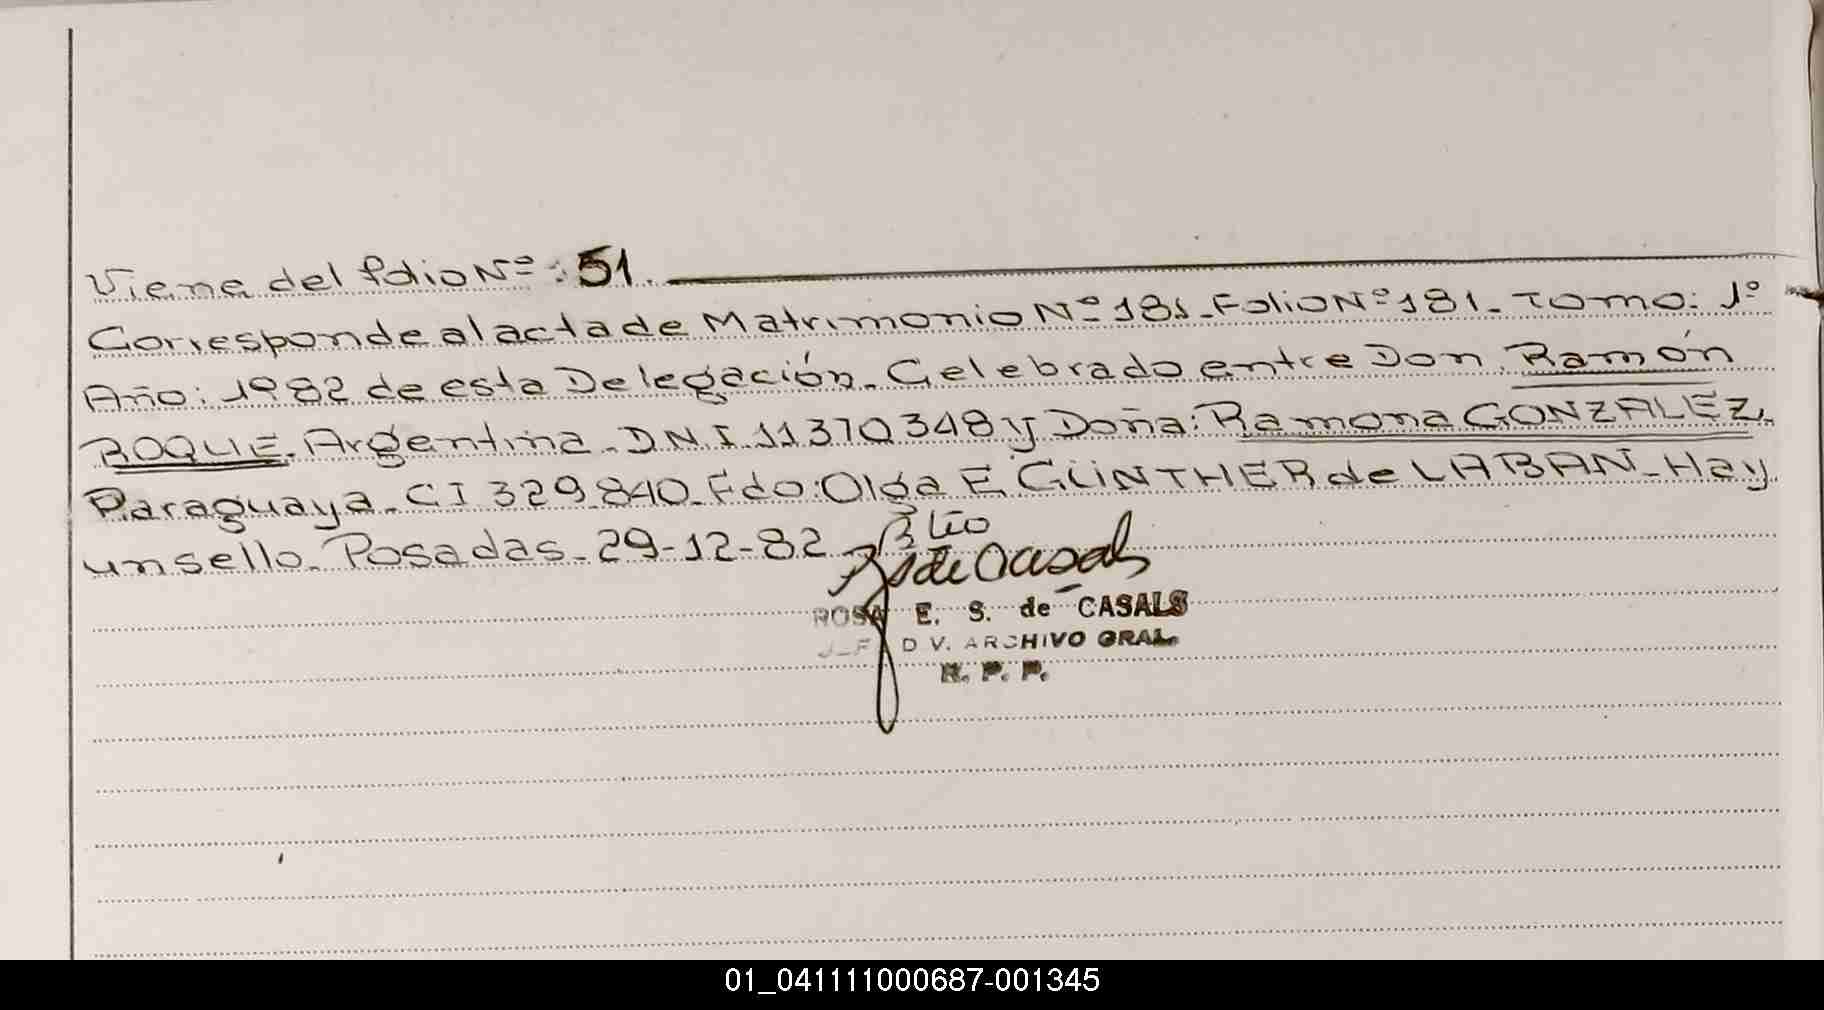 Viene del folio Nº : 51.
Corresponde al acta de Matrimonio Nº 181. Folio Nº 181. Tomo: 1º
Año: 1982 de esta Delegación. Celebrado entre Don. Ramón
ROQUE. Argentina. D.N.I. 11370348 y Doña: Ramona GONZALEZ.
Paraguaya. CI 329.840. Fdo: Olga E. GÜNTHER de LABAN. Hay
un sello. Posadas. 29-12-82.
de Casals
ROSA E. S. de CASALS
DIV. ARCHIVO GRAL.
R. P. P.
01_041111000687-001345